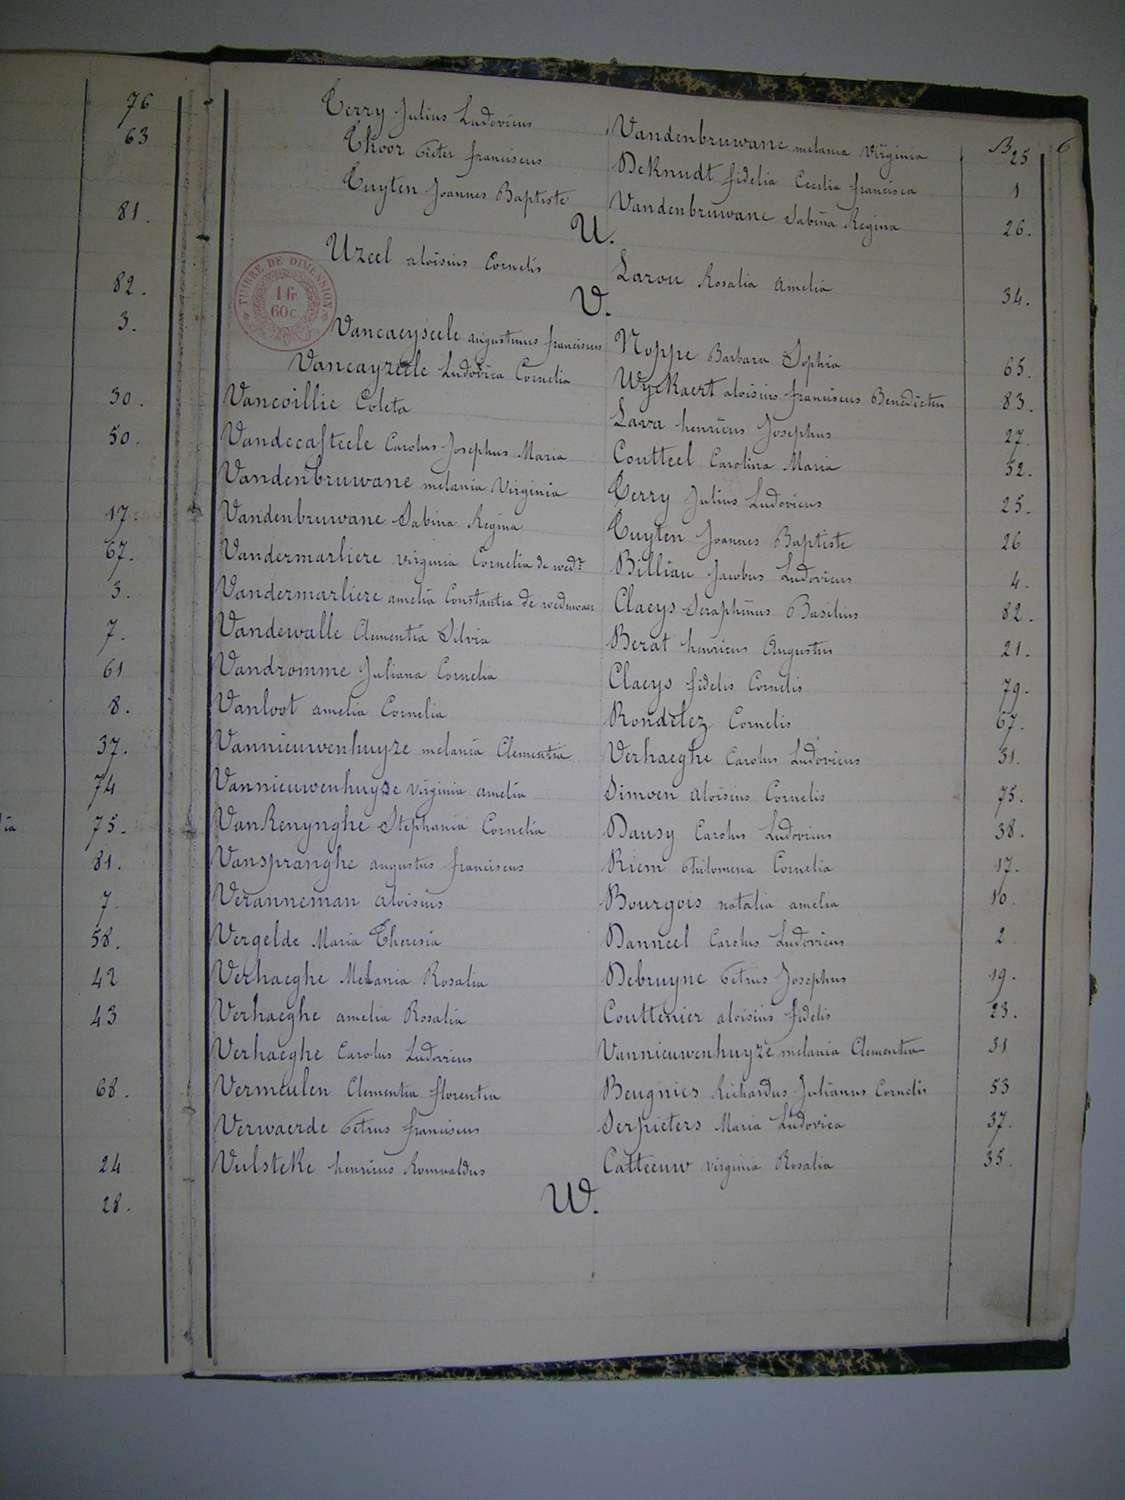 76
63
81.
82.
3.
30.
50.
17
67.
3.
7.
61
8.
37.
74
75.
81.
7.
58.
42
43
68.
24
28.
6
Terry Julius Ludovicus Vandenbruwane melania Virginia B 25
Thoor Pieter franciscus DeKnudt fidelia Cecilia francisca 1
Tuyten Joannes Baptiste Vandenbruwane Sabina Regina 26.
U.
Uzeel aloisius Cornelis Larou Rosalia amelia 34.
TIMBRE DE DIMENSION
1 fr
60 c.
V.
Vancaeyseele augustinus franciscus Noppe Barbara Sophia 65.
Vancayzeele Ludovica Cornelia Wyckaert aloisius franciscus Benedictus 83.
Vancoillie Coleta Lava henricus Josephus 27.
Vandecasteele Carolus Josephus Maria Coutteel Carolina Maria 52.
Vandenbruwane melania Virginia Terry Julius Ludovicus 25.
Vandenbruwane Sabina Regina Tuyten Joannes Baptiste 26
Vandermarliere virginia Cornelia de wedr Billiau Jacobus Ludovicus 4.
Vandermarliere amelia Constantia de weduwaer Claeys Seraphinus Basilius 82.
Vandewalle Clementia Silvia Berat henricus Augustus 21.
Vandromme Juliana Cornelia Claeys fidelis Cornelis 79.
Vanloot amelia Cornelia Rondelez Cornelis 67.
Vannieuwenhuyze melania Clementia Verhaeghe Carolus Ludovicus 31.
Vannieuwenhuyse virginia amelia Simoen aloisius Cornelis 75.
VanRenynghe Stephania Cornelia Dausy Carolus Ludovicus 38.
Vanspranghe augustus franciscus Riem Philomena Cornelia 17.
Veranneman aloisius Bourgois natalia amelia 10.
Vergelde Maria Theresia Danneel Carolus Ludovicus 2
Verhaeghe Melania Rosalia Debruyne Petrus Josephus 19.
Verhaeghe amelia Rosalia Couttenier aloisius fidelis 23.
Verhaeghe Carolus Ludovicus Vannieuwenhuyze melania Clementia 31
Vermeulen Clementia florentia Beugnies Richardus Julianus Cornelis 53
Verwaerde Petrus franciscus Serpieters Maria Ludovica 37.
Vulsteke henricus Romualdus Catteeuw virginia Rosalia 35.
W.